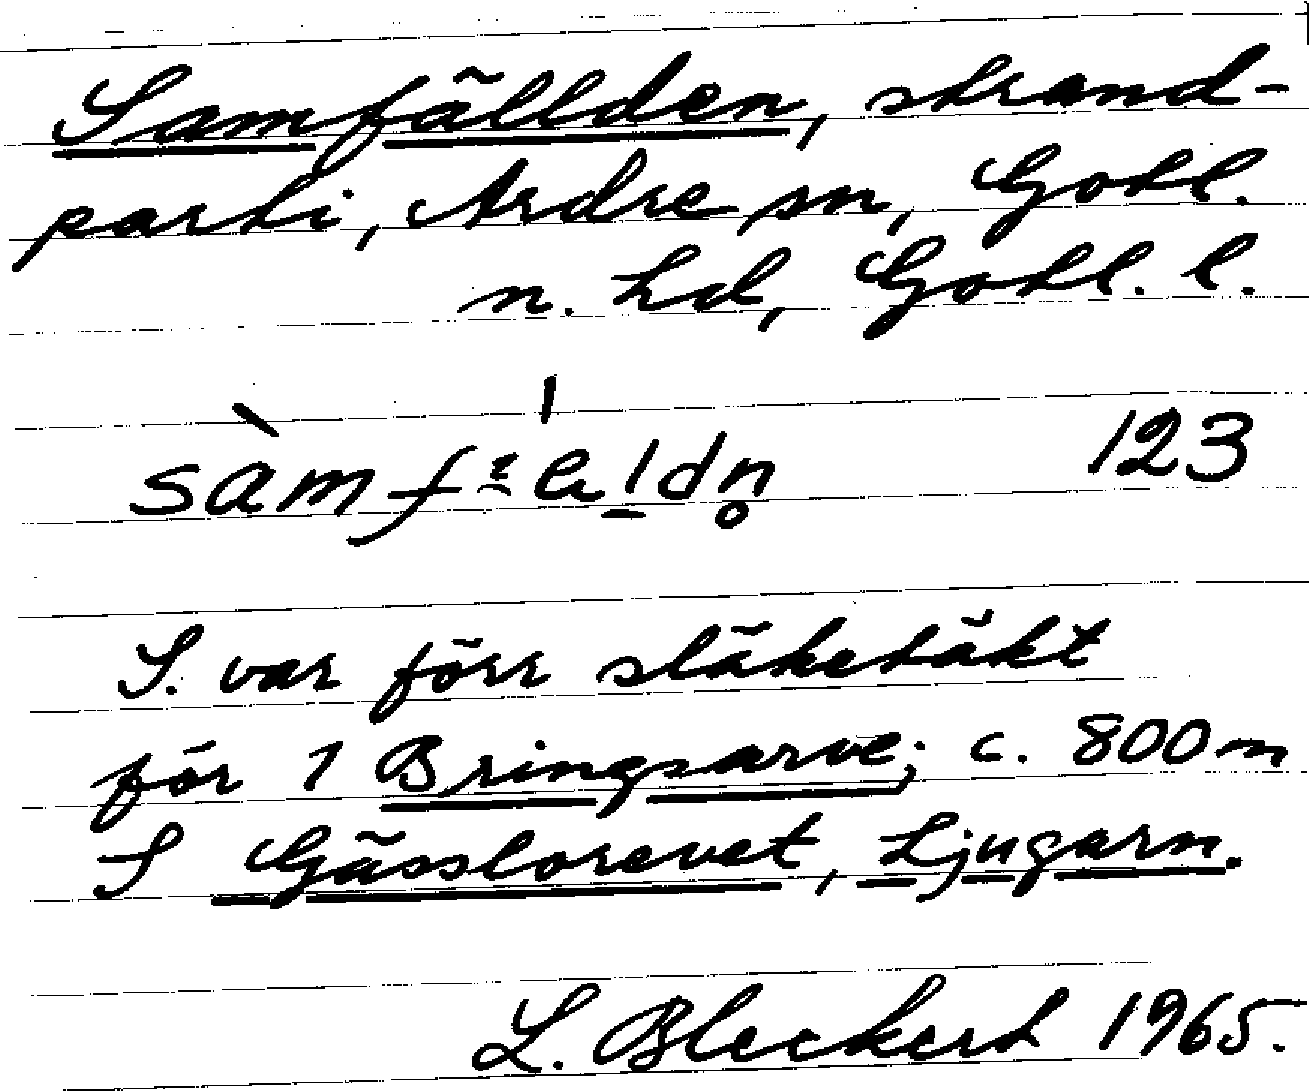 Samfällden, strand-
parti, Ardre sn, Gotl.
n. hd, Gotl. l.
123
S. var förr släketäkt
för 1 Bringsarve; c. 800 m
S Gässlorevet, Ljugarn.
L. Bleckert 1965.